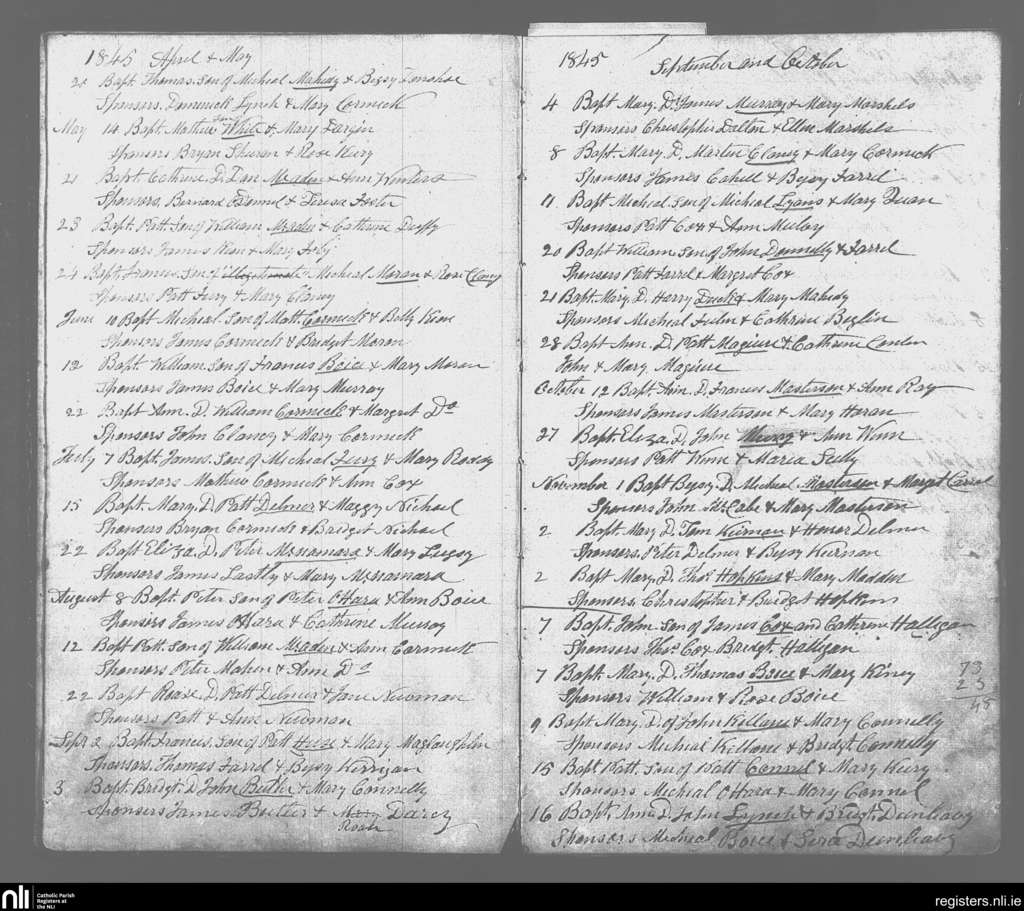 1845 April & May
20 Bapt. Thomas. Son of Micheal Mahedy & Bessy Donohoe
Sponsors. Domenick Lynch & Mary Cormeck
May 14 Bapt. Mathew Son of White & Mary Dargin
Sponsors Bryan & Rose Keiry
21 Bapt. Cathrine. D. Dan Meader & Ann Winters
Sponsors. Bernard & Teresa Foster
23 Bapt. Patt. Son of William Meader & Cathrine Duffy
Sponsors James & Mary
24 Bapt. Francis. Son of Micheal Moran & Rose Clancy
Sponsors Patt Fury & Mary Clancy
June 10 Bapt Micheal. Son of Matt Cormeck & Betty
Sponsors James Cormeck & Bridget Moran
12 Bapt. William Son of Francis Boice & Mary Moran
Sponsors James Boice & Mary Murray
22 Bapt Ann. D. William Cormeck & Margret Do
Sponsors John Clancy & Mary Cormeck
July 7 Bapt. James. Son of Micheal Fury & Mary Roddy
Sponsors Mathew Cormeck & Ann Cox
15 Bapt. Mary. D. Patt Delmer & Maggy Nichael
Sponsors Bryan Cormeck & Bridget Nichael
22 Bapt Eliza. D. Peter McNamara & Mary
Sponsors James Lastly & Mary McNamara
August 8 Bapt. Peter Son of Peter OHara & Ann Boice
Sponsors James OHara & Cathrine Murray
12 Bapt Patt. Son of William Meader & Ann Cormeck
Sponsors Peter & Ann Do
22 Bapt Roase. D. Patt Delmer & Jane Newman
Sponsors Patt & Ann Newman
Sept 2 Bapt. Francis. Son of Patt & Mary Magloughlin
Sponsors. Thomas Farrel & Bessy Kerrigan
3 Bapt. Bridgt. D John Butler & Mary Connelly
Sponsors James Butler & Darcy
Rose
1845 September and October
4 Bapt Mary. Dt. James Murray & Mary Marshels
Sponsers Christopher Dalton & Ellen Marshels
8 Bapt. Mary. D. Martin Clancy & Mary Cormeck
Sponsors James Cahell & Bessy Farrel
11 Bapt Micheal Son of Micheal Lyons & Mary
Sponsors Patt Cox & Ann
20 Bapt William Son of John Donnelly & Farrel
Sponsors Patt Farrel & Margret Cox
21 Bapt. Mary. D. Harry & Mary Mahedy
Sponsors Micheal & Cathrine Beglin
28 Bapt Ann. D. Patt Magiure & Cathrine Conlen
John & Mary Magiure
October 12 Bapt. Ann. D. Francis Masterson & Ann Ray
Sponsers James Masterson & Mary Heran
27 Bapt. Eliza. D. John & Ann Winn
Sponsors Patt Winn & Maria
November 1 Bapt Bessy. D. Micheal Masterson & Margt
Sponsors John McCabe & Mary Masterson
2 Bapt. Mary D. Tom Kiernan & Honor Delmer
Sponsers. Peter Delmer & Bessy Kiernan
2 Bapt Mary. D. Thos. Hopkins & Mary Madden
Sponsers. Christopher & Bridget Hopkins
7 Bapt. John. Son of James Cox and Cathrine Halligan
Sponsers Thos. Cox Bridgt. Halligan
7 Bapt. Mary. D. Thomas Boice & Mary Kiney
Sponsors William & Rose Boice
9 Bapt Mary. D. of John Killane & Mary Connelly
Sponsors Micheal Killane & Bridgt. Connelly
15 Bapt. Watt. Son of Watt Connel & Mary
Sponsors Micheal OHara & Mary Connel
16 Bapt. Ann D. John Lynch & Bridgt. Dunleavy
Sponsors Micheal Boice & Dunleavy
73
23
45
nli Catholic Parish
Registers at
the NLI
registers.nli.ie